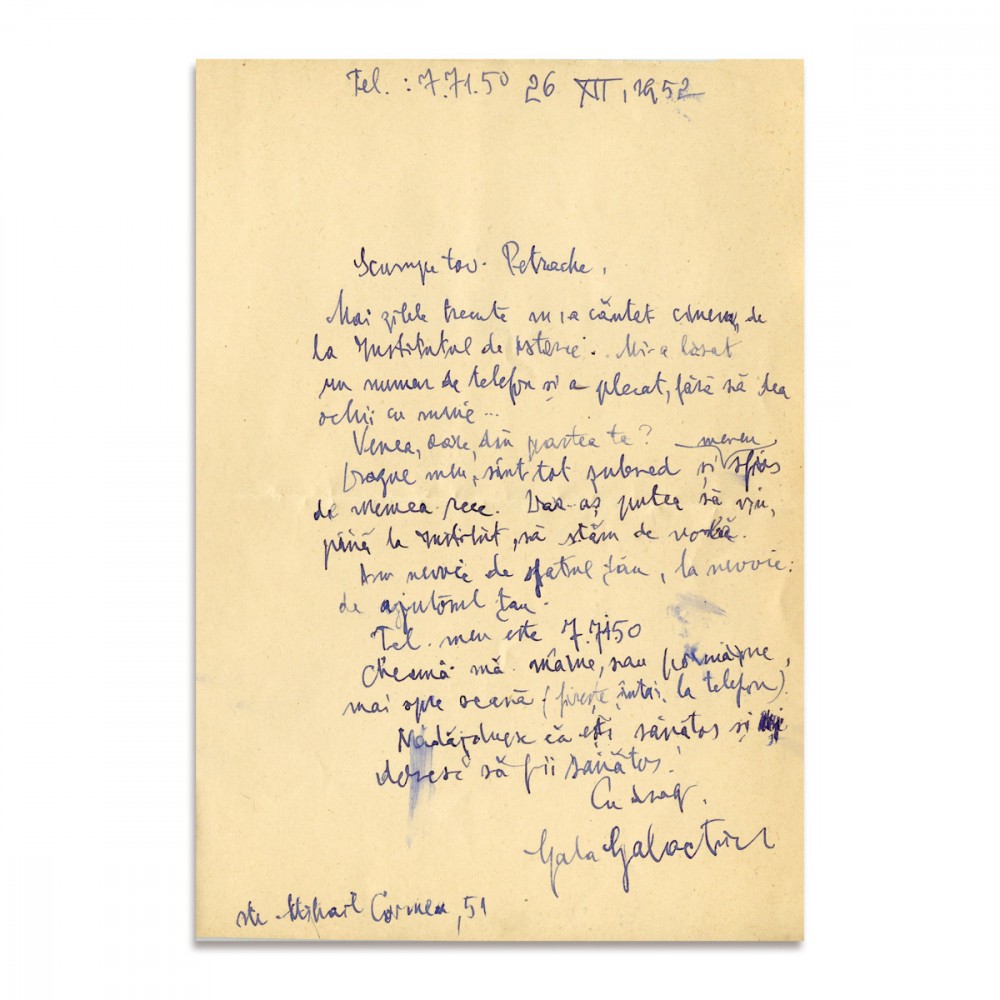 Tel. : 7.71.50 26 XII, 1952
Scumpe tov. Petrache,
Mai zilele trecute m-a căutat cineva, de
la Institutul de istorie. Mi-a lăsat
un număr de telefon și a plecat, fără să dea
ochii cu mine...
Venea, oare, din partea ta? mereu
Dragul meu, sînt tot șubred și sfios
de vremea rece. Dar aș putea să viu,
până la Institut, să stăm de vorbă.
Am nevoie de sfatul tău, la nevoie:
de ajutorul tău.
Tel. meu este 7.7150
Cheamă-mă mâine, sau poimâine,
mai spre seară (firește, întâi, la telefon).
Nădăjduesc că ești sănătos și îți
doresc să fii sănătos!
Cu drag,
Gala Galaction
str. Mihail Cornea, 51